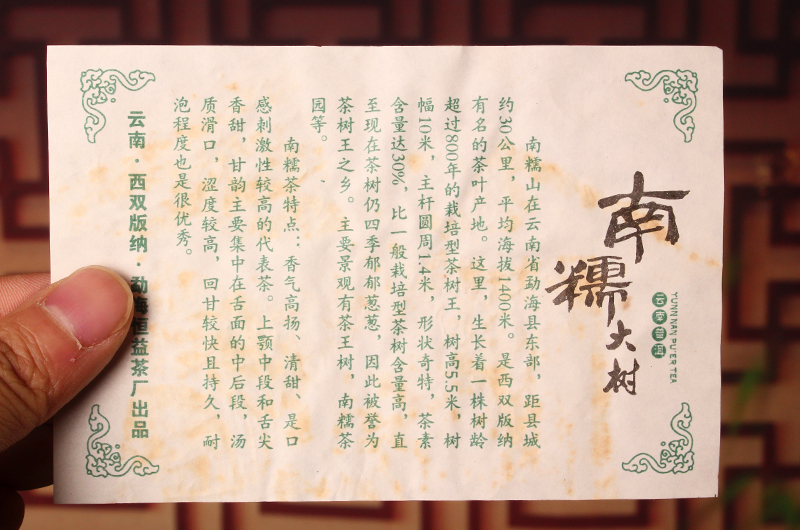 南糯大树
YUNNAN PU'ER TEA
云南普洱
南糯山在云南省勐海县东部，距县城
约30公里，平均海拔1400米。是西双版纳
有名的茶叶产地。这里，生长着一株树龄
超过800年的栽培型茶树王，树高5.5米，树
幅10米，主杆圆周1.4米，形状奇特，茶素
含量达30%，比一般栽培型茶树含量高，直
至现在茶树仍四季郁郁葱葱，因此被誉为
茶树王之乡。主要景观有茶王树，南糯茶
园等。
南糯茶特点：香气高扬、清甜、是口
感刺激性较高的代表茶。上颚中段和舌尖
香甜，甘韵主要集中在舌面的中后段，汤
质滑口，涩度较高，回甘较快且持久，耐
泡程度也是很优秀。
云南·西双版纳·勐海恒益茶厂出品